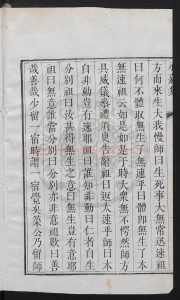 方而來生大我慢師曰生死事大無常迅速祖
曰何不體取無生了無速乎曰體即無生了本
無速祖云如是如是于時大衆無不愕然師方
具威儀參禮須臾告辭祖曰返太速乎師曰本
自非動豈有速耶祖曰誰知非動曰仁者自生
分別祖曰汝甚得無生之意曰無生豈有意耶
祖曰無意誰當分別曰分別亦非意祖歎曰善
哉善哉少留一宿時謂一宿覺矣策公乃留師